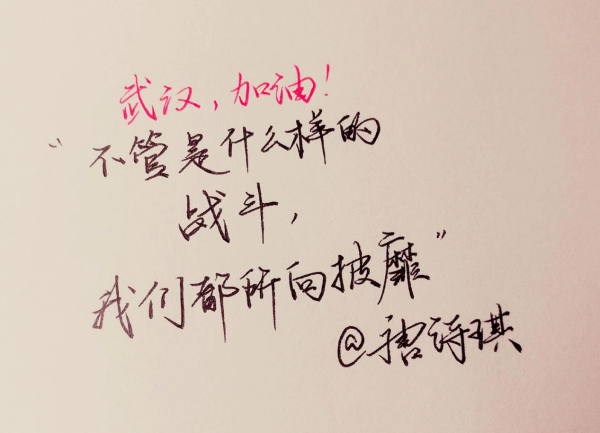 武汉，加油！
“不管是什么样的
战斗，
我们都所向披靡”
@唐诗琪